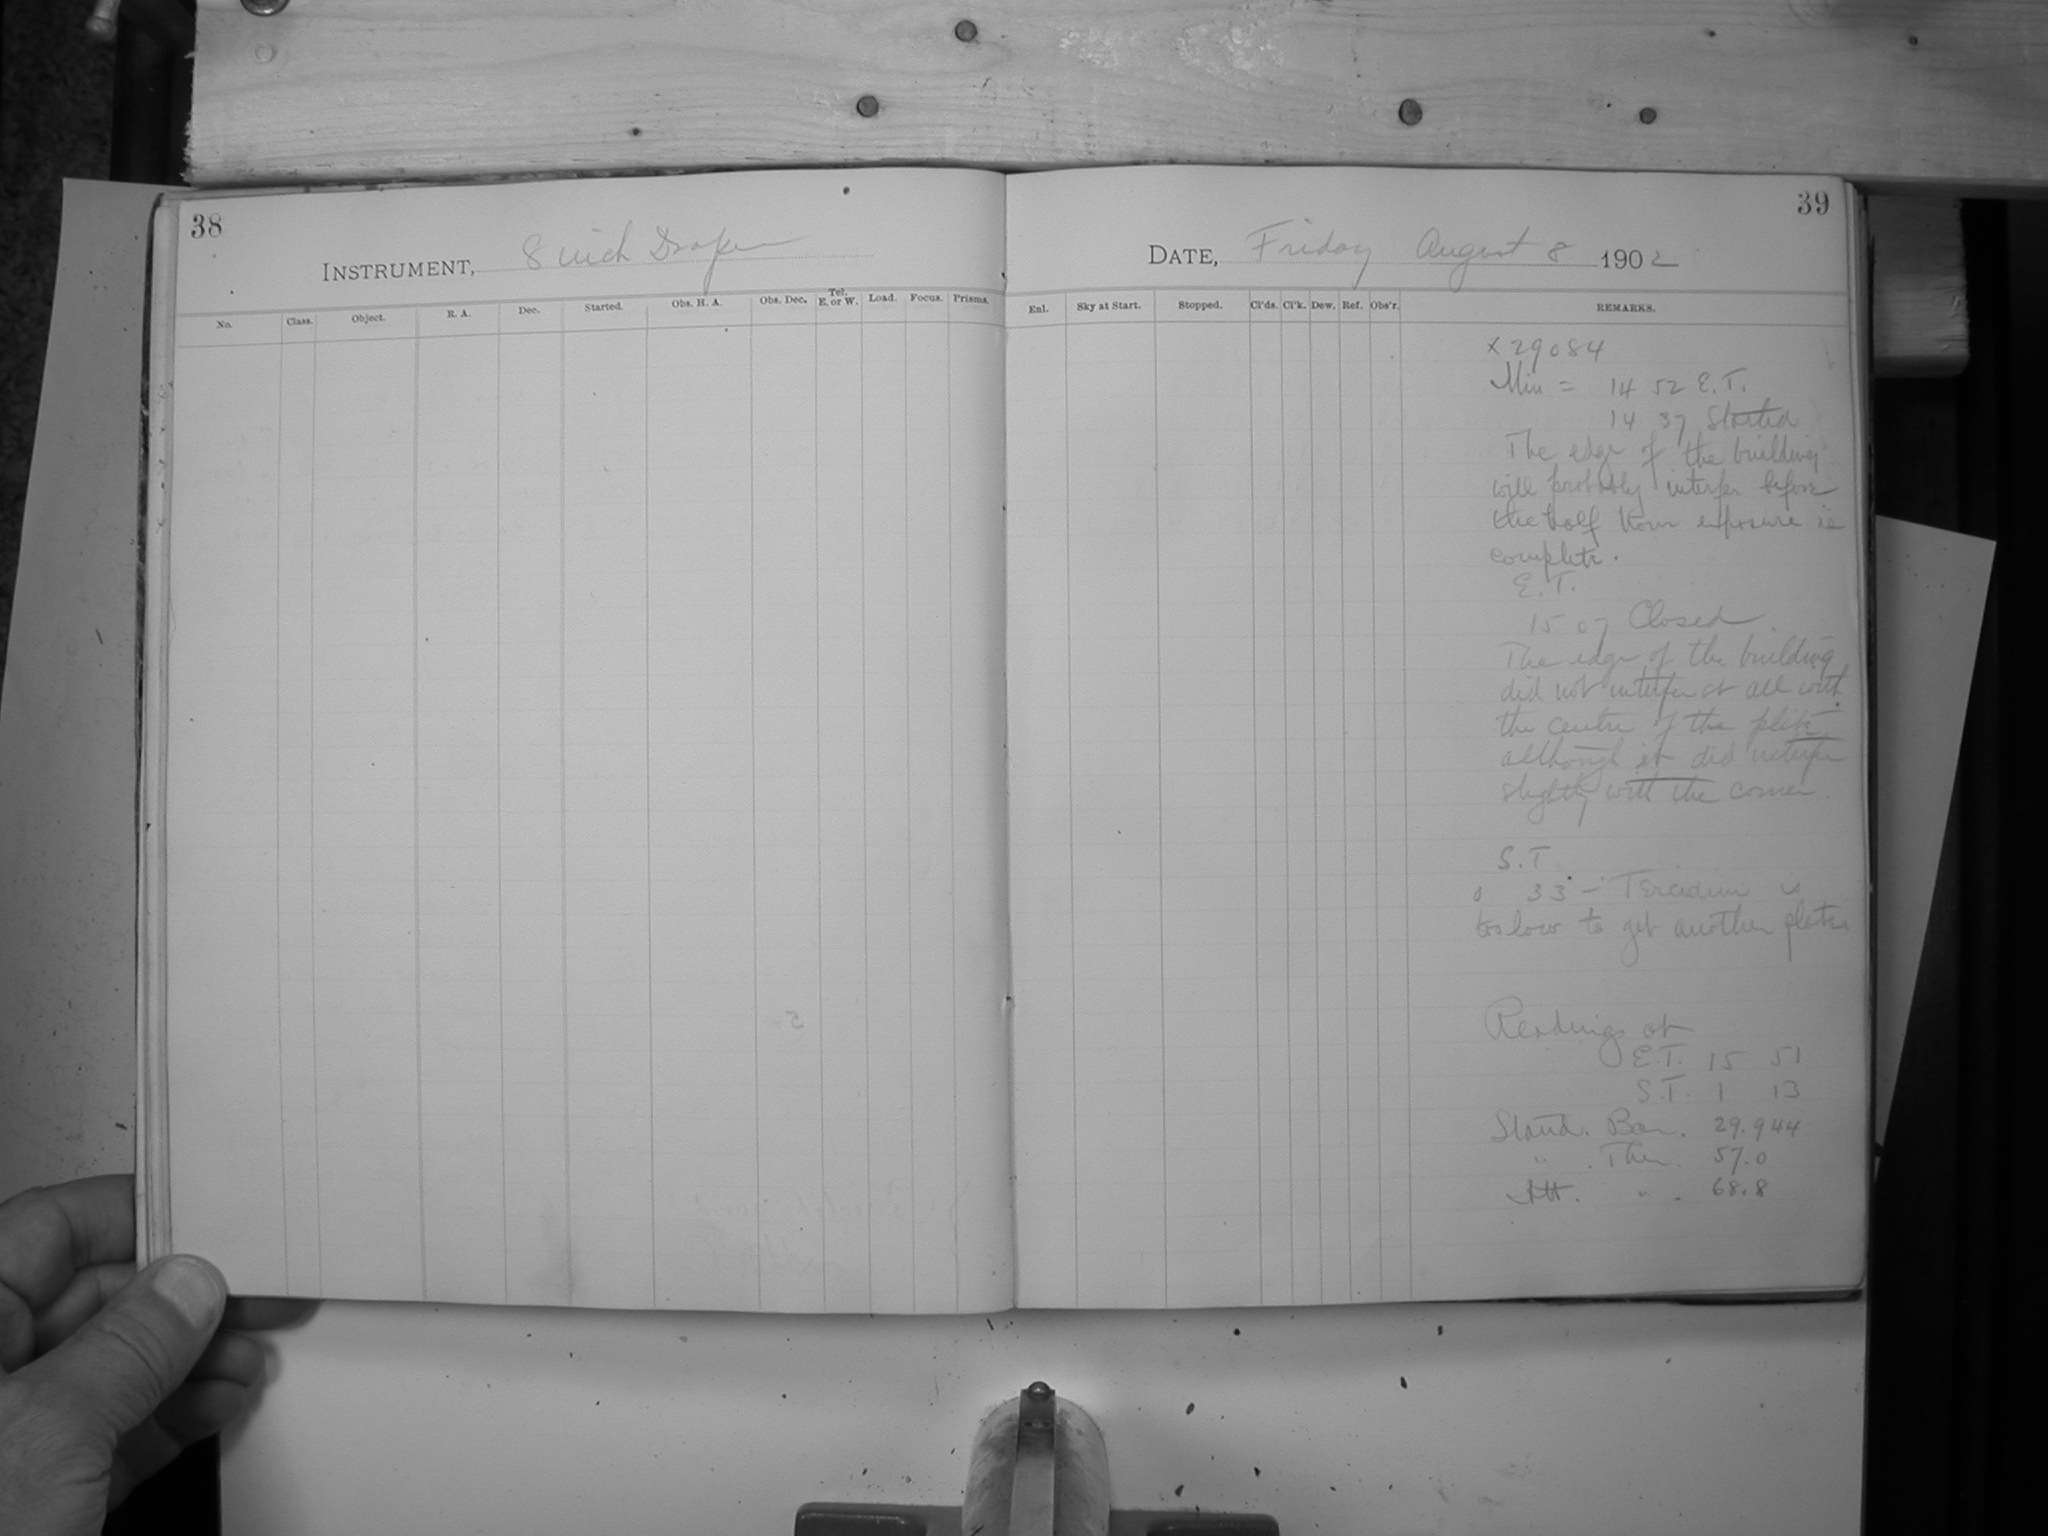 38
INSTRUMENT, 8 inch Draper
No. Class. Object. R. A. Dec. Started. Obs. H. A. Obs. Dec. Tel. E. or W. Load. Focus. Prisms.
39
DATE, Friday August 8 1902
Enl. Sky at Start. Stopped. Cl'ds. Cl'k. Dew. Ref. Obs'r. REMARKS.
X 29084
Min = 14 52 E.T.
14 37 Started
The edge of the building
will probably interfer before
the half hour exposure is
complete.
E.T.
15 07 Closed
The edge of the building
did not interfer at all with
the centre of the plate
although it did interfer
slightly with the corner.
S.T.
0 33 - is
too low to get another plate
Readings at
E.T. 15 51
S.T. 1 13
Stand. Bar. 29.944
" . Ther. 57.0
Att. " . 68.8